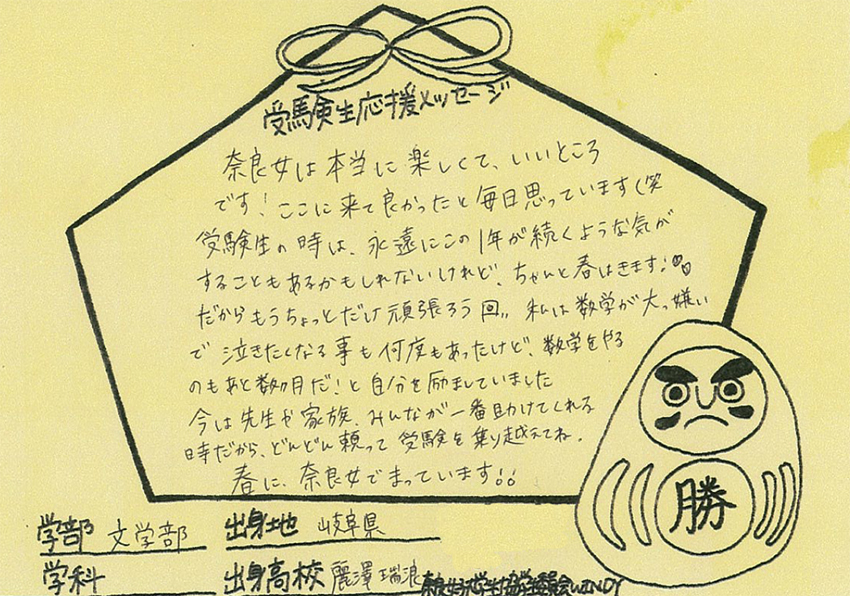 受験生応援メッセージ
奈良女は本当に楽しくて、いいところ
です！ここに来て良かったと毎日思っています(笑
受験生の時は、永遠にこの1年が続くような気が
することもあるかもしれないけれど、ちゃんと春はきます！
だからもうちょっとだけ頑張ろう 私は数学が大っ嫌い
で泣きたくなる事も何度もあったけど、数学をやる
のもあと数か月だ！と自分を励ましていました
今は先生や家族、みんなが一番助けてくれる
時だから、どんどん頼って受験を乗り越えてね。
春に、奈良女でまっています!!
勝
学部 文学部 出身地 岐阜県
学科 出身高校 麗澤瑞浪
WINDY